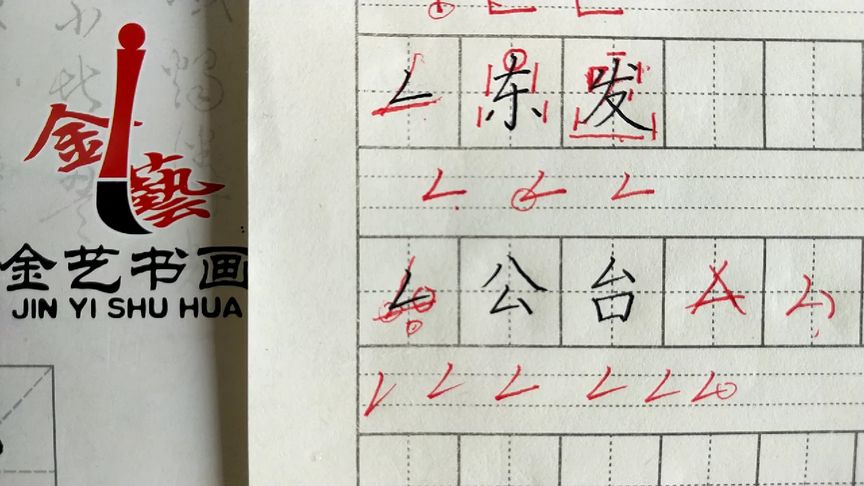 金藝
金艺书画
JIN YI SHU HUA
东发
公台